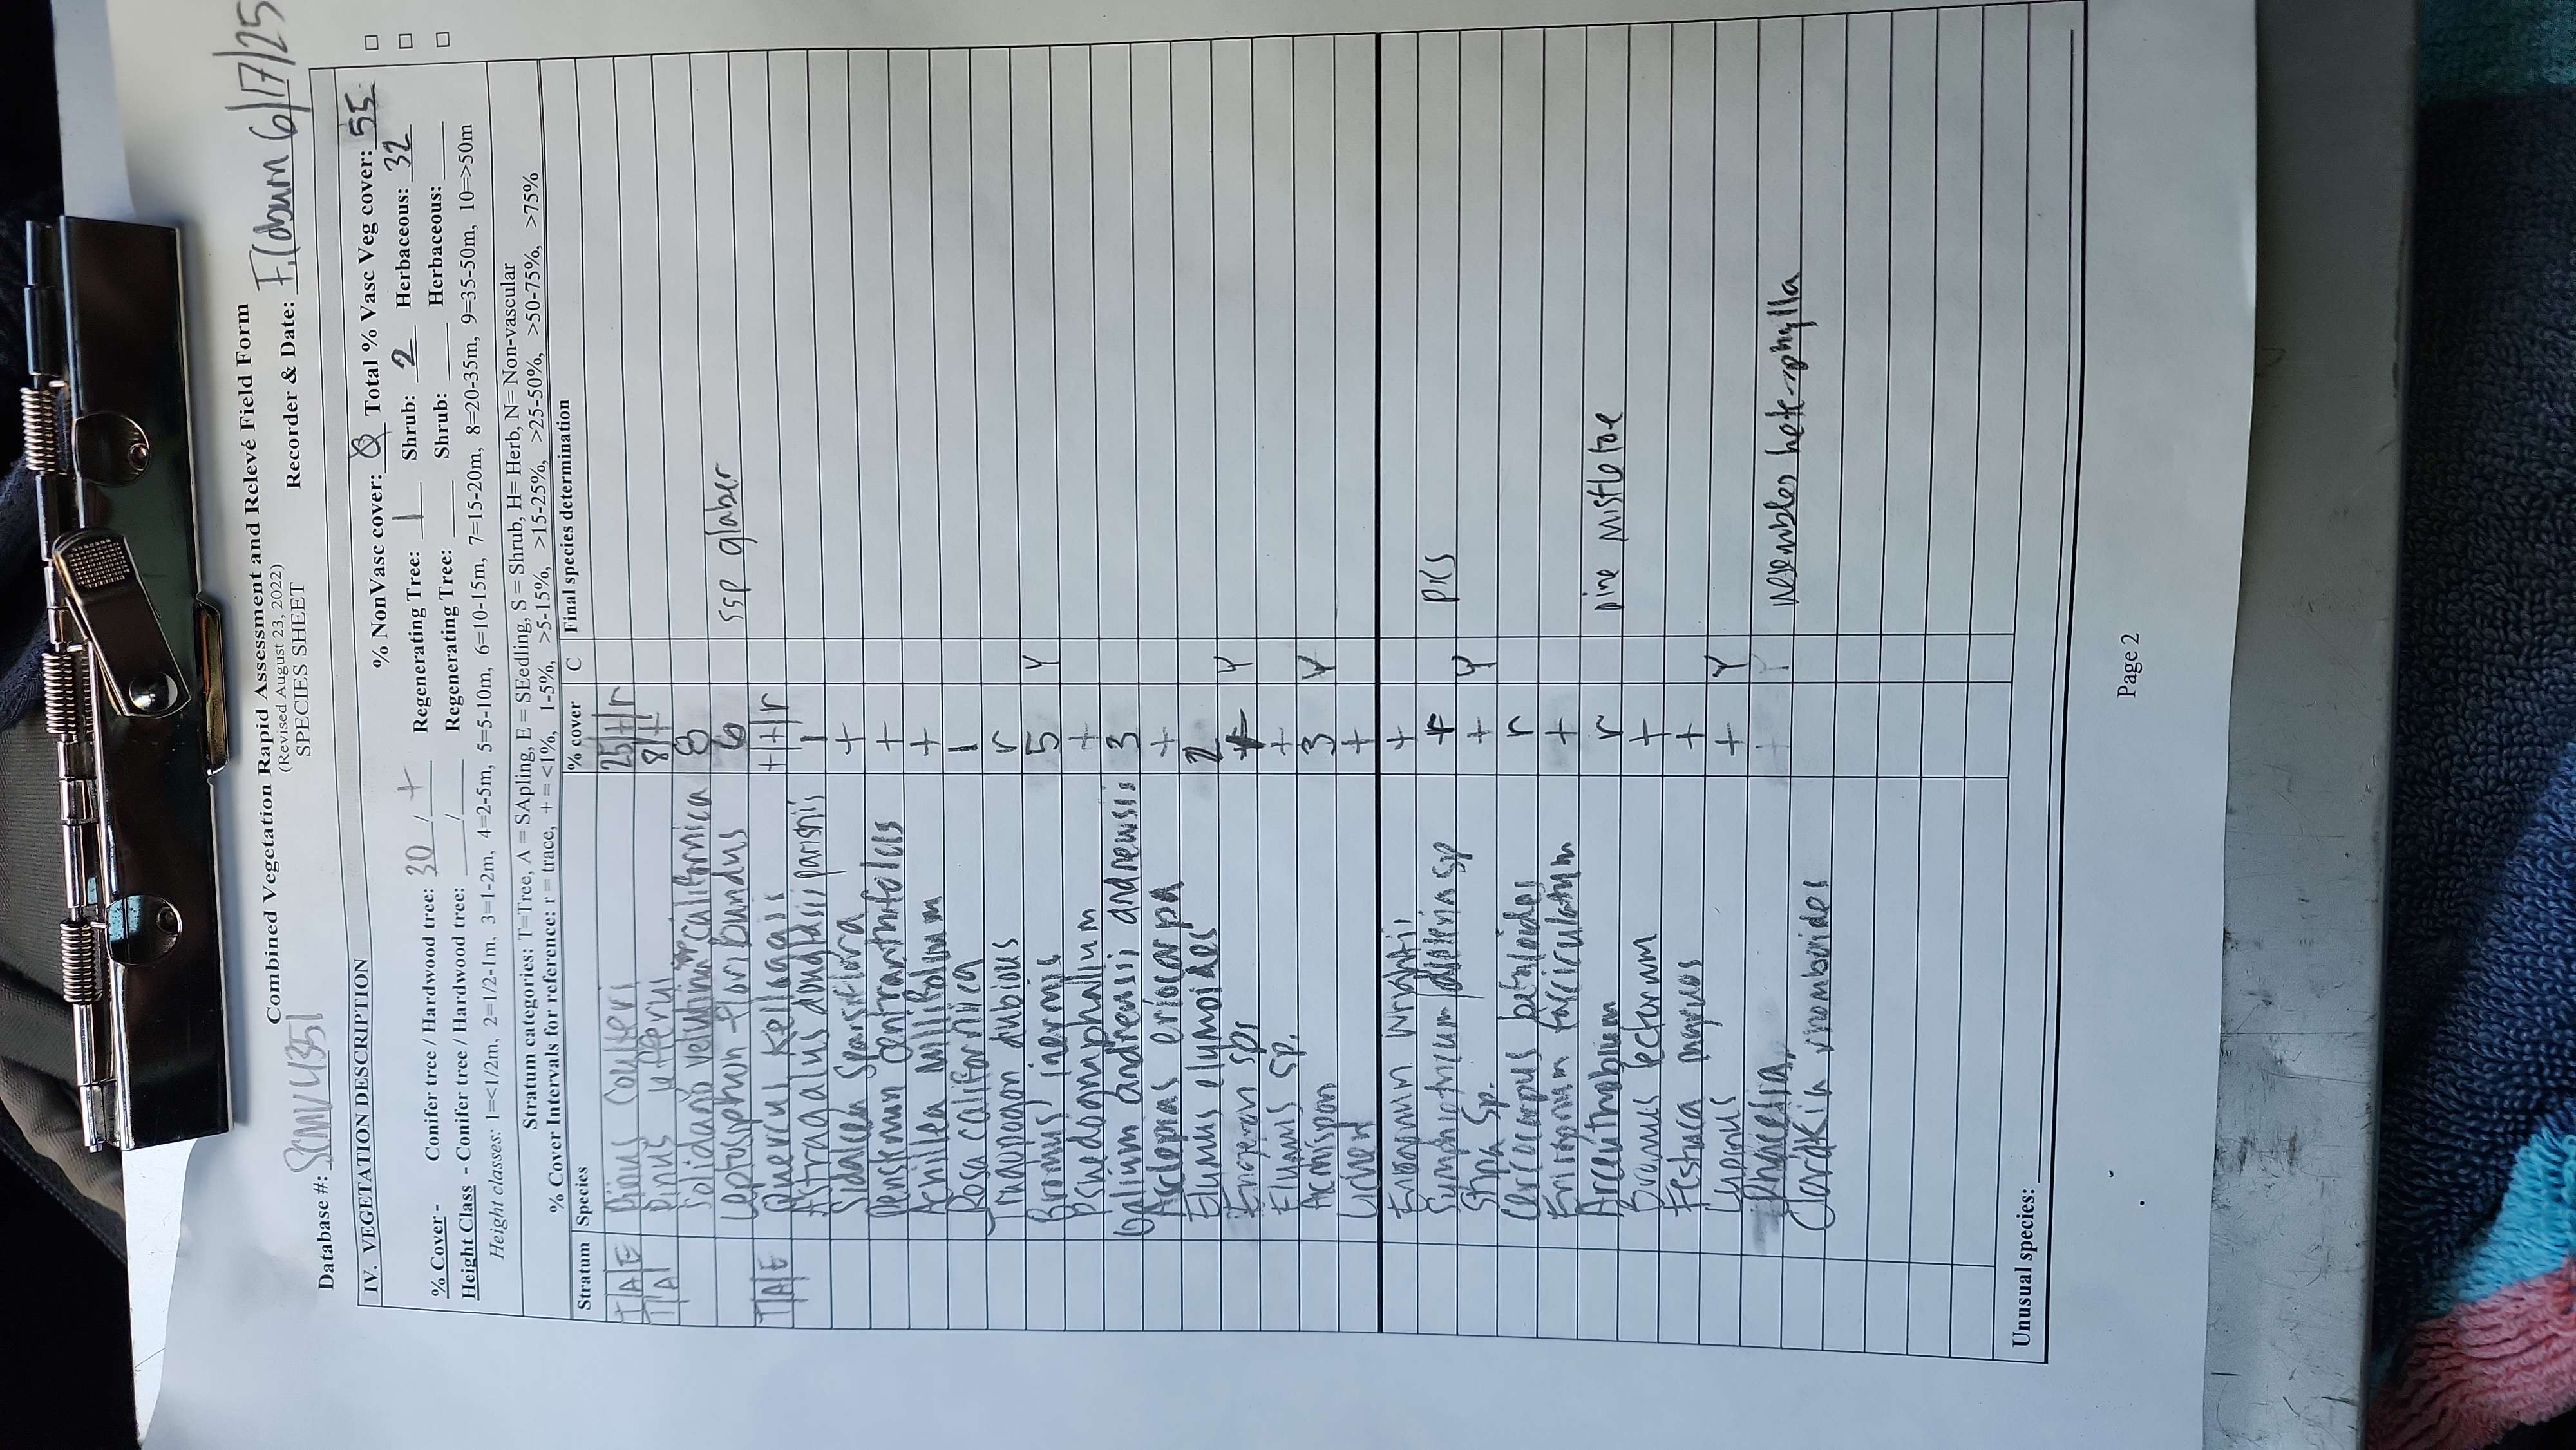 Combined Vegetation Rapid Assessment and Relevé Field Form
(Revised August 23, 2022)
SPECIES SHEET
Database #: Recorder & Date: 6/17/25
IV. VEGETATION DESCRIPTION
% NonVasc cover: 0 Total % Vasc Veg cover: 55
% Cover - Conifer tree / Hardwood tree: 30 / + Regenerating Tree: 1 Shrub: 2 Herbaceous: 32
Height Class - Conifer tree / Hardwood tree: / Regenerating Tree: Shrub: Herbaceous:
Height classes: 1=<1/2m, 2=1/2-1m, 3=1-2m, 4=2-5m, 5=5-10m, 6=10-15m, 7=15-20m, 8=20-35m, 9=35-50m, 10=>50m
Stratum categories: T=Tree, A = SApling, E = SEedling, S = Shrub, H= Herb, N= Non-vascular
% Cover Intervals for reference: r = trace, + = <1%, 1-5%, >5-15%, >15-25%, >25-50%, >50-75%, >75%
Stratum Species % cover C Final species determination
T|A|E Pinus Coulteri 25|+|r
T|A Pinus 8|+
Solidago velutina californica 8
Leptosiphon floribundus 6 ssp glaber
T|A|E Quercus Kelloggii +|+|r
Astragalus douglasii parishii 1
Sidalcea sparsiflora +
Penstemon centranthifolius +
Achillea millifolium +
Rosa californica 1
Tragopogon dubious r
Bromus inermis 5 Y
Psuedognaphalium +
Galium andreussi andrewsii 3
Asclepias eriocarpa +
Elymus elymoides 2
Erigeron sp. + Y
Elymus sp. +
Acmispon 3 Y
Lichen +
Eriogonum wrightii +
Symphiotricum sp + pics
Stipa sp. + Y
Cercocarpus betuloides r
Eriogonum fasciculatum +
Arceuthobium r pine mistletoe
Bromus tectorum +
Festuca myuros +
Lupinus + Y
Phacelia + Y resembles heterophylla
Clardkia rhomboides
Unusual species:
Page 2